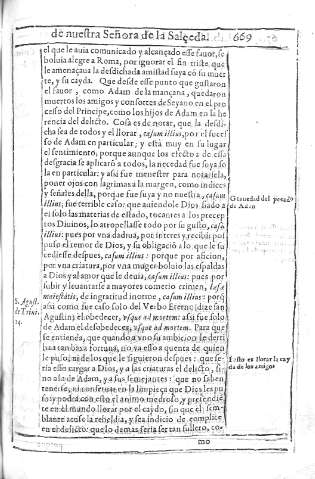 de nuestra Señora de la Salçeda. 669
el que le auia comunicado y alcançado esse fauor, se
boluia alegre a Roma, por ignorar el fin triste que
le amenaçaua la desdichada amistad suya có su muer-
te, y su cayda. Que desde esse punto que gustaron
el fauor, como Adam de la mançana, quedaron
muertos los amigos y consortes de Seyano en el pro
cesso del Principe, como los hijos de Adam en la he
rencia del delicto. Cosa es de notar, que la desdi-
cha sea de todos y el llorar, casum illius, por el suces
so de Adam en particular; y está muy en su lugar
el sentimiento, porque aunque los efectos de essa
desgracia se aplicaró a todos, la necedad fue suya so
la en particular: y assi fue menester para nota dela,
poner ojos con lagrimas a la margen, como indices
y señales della, porque fue suya y no nuestra, casum
illius; fue terrible caso: que auiendole Dios fiado a
el solo las materias de estado, tocantes a los precep
tos Diuinos, lo atropellasse todo por su gusto, casũ
illius: pues por vna dadiua, por interes y recibir pos
puso el temor de Dios, y su obligació a lo que le su
cediesse despues, casum illius: porque por aficion,
por vna criatura, por vna muger boluio las espaldas
a Dios y al amor que le deuia, casum illius: pues por
subir y leuantarse a mayores cometio crimen, læsa
maiestatis, de ingratitud inorme, casum illius: porq̃
assi como fue caso solo del Verbo Eterno (dize san
Agustin) el obedecer, vsque ad mortem: assi fue solo
de Adam el desobedecer, vsque ad mortem. Para que
se entienda, que quando a vno su ambicion le derri
ba a tan baxa fortuna, no ya esso a cuenta de quien
le puso, ni de los que le siguieron despues: que se-
ria esso cargar a Dios, y a las criaturas el delicto, si-
no a la de Adam, y a sus semejantes: que no saben
tenerse, ni conseruarse en la limpieça que Dios les pu
so y podra con esto el animo medroso, y pretendié
te en el mundo llorar por el caydo, sin que el sem-
blante acuse la rebeldia, y sea indicio de complice
en el delicto: que lo demas seria ser tan sullero, co-
mo
Grauedad del pecado
de Adan
S. Agust.
de Trinit.
14.
Iusto es llorar la cay
da de los amigos